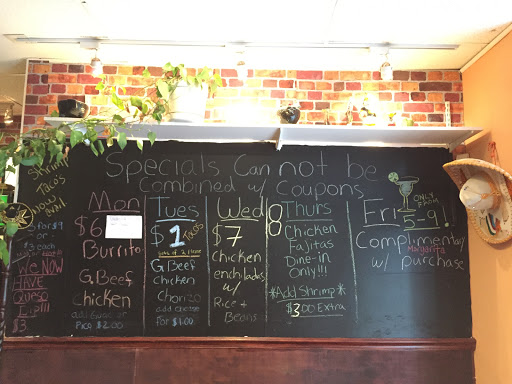 Specials Can not be
Combined w/ coupons
Shrimp
Taco's
Now
Avail
3 for $9
or
$3 each
We NOW
HAVE
Queso
Dip!!!
$3
Mon
$6
Burrito
G.Beef
Chicken
add Guac or
Pico $2.00
Tues
$1 Tacos
G.Beef
Chicken
Chorizo
add cheese
for $1.00
Wed
$7
chicken
enchiladas
w/
Rice +
Beans
Thurs
$8
Chicken
Fajitas
Dine-in
Only!!!
*Add Shrimp*
$3.00 Extra
Fri
ONLY FROM
5-9!!
Complimentary
Margarita
w/ purchase